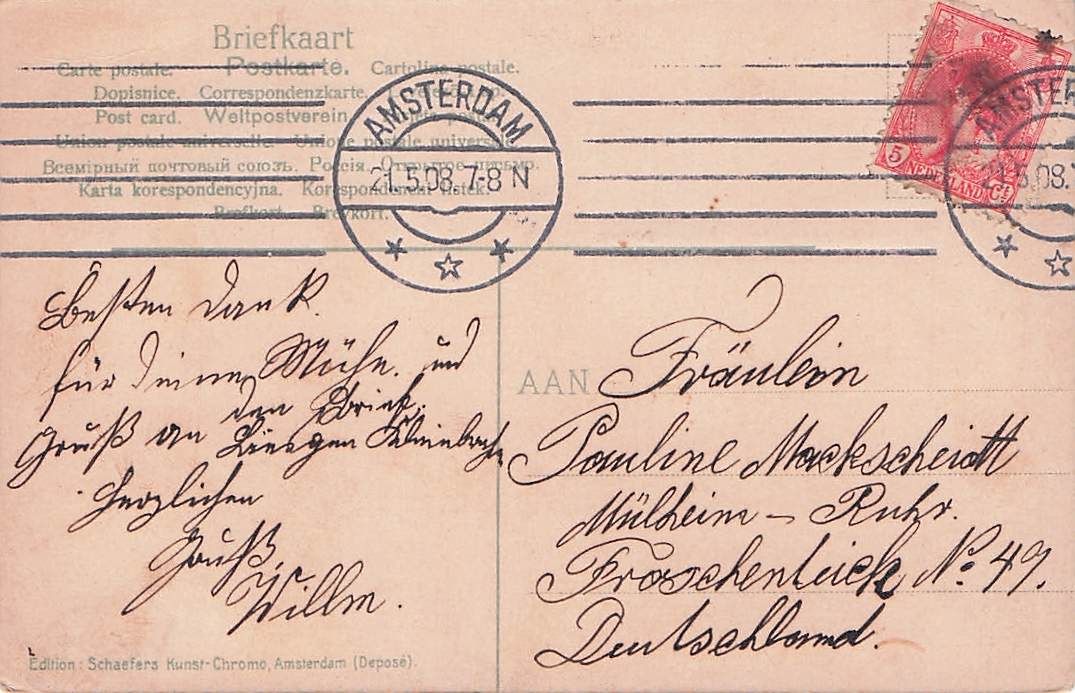 Briefkaart
Carte postale. Postkarte. Cartolina postale.
Dopisnice. Correspondenzkarte.
Post card. Weltpostverein
Union postale universelle. Unione postale universale
Всемірный почтовый союзъ. Россія. Открытое письмо.
Karta korespondencyjna. Korespondenční lístek.
Brefkort. Brevkort.
AMSTERDAM
21.5.08.7-8 N
AMSTER
21.5.08.7
5 NEDERLAND Ct
Besten Dank
für Deine Mühe. und
den Brief.
Gruß an
Herzlichen
Gruß
Willm.
AAN Fräulein
Pauline Mackscheidt
Mülheim - Ruhr.
Froschenteich No. 49.
Deutschland.
Edition: Schaefers Kunst-Chromo, Amsterdam (Deposé).